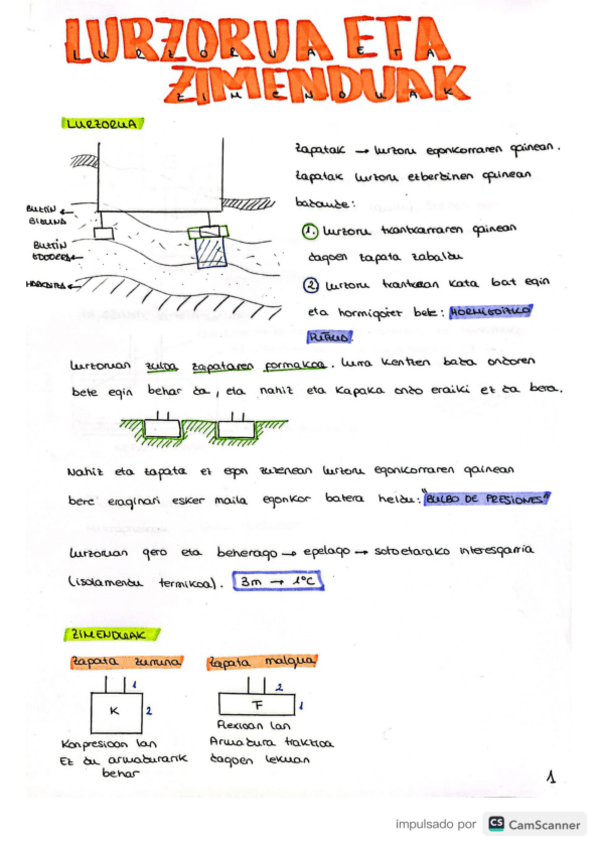 LURZORUA ETA
ZIMENDUAK
LURZORUA
Zapatak → lurzoru egonkorraren gainean.
Zapatak lurzoru ezberdinen gainean
badaude:
1. lurzoru txantxarraren gainean
dagoen zapata zabaldu
2 lurzoru kata bat egin
eta hormigoiez bete: HORMIGOIZKO
BUZTIN
BIGUNA
BUZTIN
lurzoruan zuloa zapataren formakoa. lurra kentzen bada ondoren
bete egin behar da, eta nahiz eta kapaka ondo eraiki ez da bera.
Nahiz eta zapata ez egon zuzenean lurzoru egonkorraren gainean
bere eraginari esker maila egonkor batera heldu: "BULBO DE PRESIONES"
lurzoruan gero eta beherago → epelago → sotoetarako interesgarria
(isolamendu termikoa). 3m → 1°C
ZIMENDUAK
Zapata zurruna
Zapata malgua
1
K
2
2
F
1
Konpresioan lan
Ez du armadurarik
behar
Flexioan lan
Armadura trakzioa
dagoen lekuan
1
impulsado por CS CamScanner